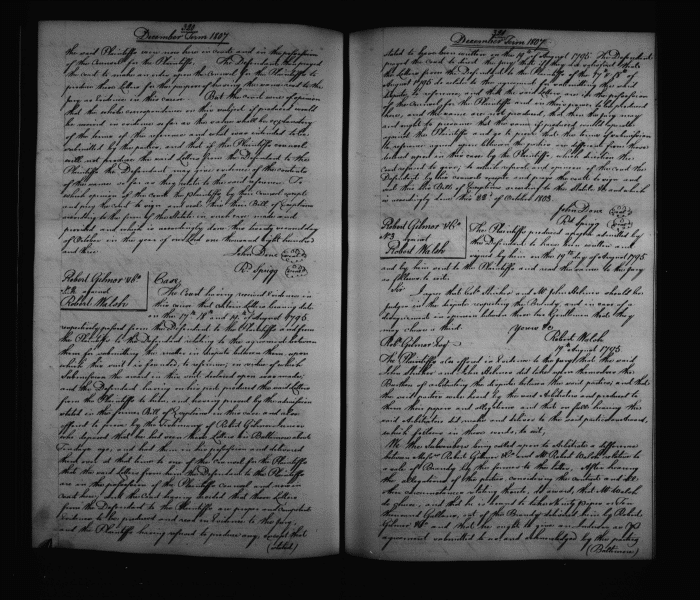 388
December Term 1807
the said Plaintiffs now here in Court and in the possession
of the Counsel for the Plaintiffs. The Defendant then prayed
the Court to make an order upon the Counsel for the Plaintiffs to
produce these Letters for the purpose of having them read to the
jury as evidence in this cause. But the Court were of opinion
that the whole correspondence on this subject if produced would
be received in evidence so far as the same shall be explanatory
of the terms of the reference and what was intended to be
submitted by the parties, and that if the Plaintiffs counsel
will not produce the said Letters from the Defendant to the
Plaintiffs the Defendant may give evidence of the contents
of the same so far as they relate to the said reference. To
which opinion of the Court the Plaintiffs by their Counsel except
and pray the Court to sign and seal this their Bill of Exceptions
according to the form of the Statute in such case made and
provided and which is accordingly done this twenty second day
of October in the year of our Lord one thousand eight hundred
and three
John Done
Rd. Sprigg
Robert Gilmor & Co.
No. 2 against
Robert Walsh
Case
The Court having received Evidence in
this cause that certain Letters bearing date
on the 17th 18th and 19th of August 1795
respectively passed from the Defendant to the Plaintiffs and from
the Plaintiffs to the Defendant relating to the agreement between
them for submitting the matter in dispute between them upon
which this suit is founded, to reference, in virtue of which
Submission the award in this suit declared upon was made;
and the Defendant having in his part produced the said Letters
from the Plaintiffs to him and having proved by the admission
stated in the former Bill of Exceptions in this case and also
offered to prove by the testimony of Robert Gilmor Junior
who deposed that he had seen those Letters in Baltimore about
days ago, and had them in his possession and delivered
them over at that time to one of the Counsel for the Plaintiffs
that the said Letters from the Defendant to the Plaintiffs
are in the possession of the Plaintiffs counsel and now in
court here; And the Court having decided that those Letters
from the Defendant to the Plaintiffs are proper and competent
evidence to be produced and read in Evidence to the jury,
and the Plaintiffs having refused to produce any, except that
(stated)
389
December Term 1807
stated to have been written on the 19th of August 1795 The Defendant
prayed the Court to direct the jury that if they are satisfied that
the Letters from the Defendant to the Plaintiffs of the 17th & 18th of
August 1795 do relate to the agreement for submitting the said
dispute to reference, and that the said Letters are in the possession
of the Counsel for the Plaintiffs and in their power to be produced
here, and the same are not produced, that then the jury may
and ought to presume that the same if produced would operate
against the Plaintiffs and go to prove that the terms of submission
to reference agreed upon between the parties are different from those
declared upon in this case by the Plaintiffs, which direction the
Court refused to give, to which refusal and opinion of the Court the
Defendant by his counsel excepts and prays the Court to sign and
seal this his Bill of Exceptions according to the Statute &c and which
is accordingly done this 22d of October 1803.
John Done
Rd. Sprigg
Robert Gilmor & Co.
No. 3 against
Robert Walsh
The Plaintiffs produced a paper admitted by
the Defendant to have been written and
signed by him on the 19th day of August 1795
and by him sent to the Plaintiffs and read the same to the jury
as follows to wit.
Sir
I agree that Capt. Stricker and Mr. John Holmes should be
judges in the dispute respecting the Brandy and in case of a
disagreement in opinion between these two Gentlemen that they
may choose a third. Yours &c.
Robert Walsh
Robt. Gilmor Esqr. 19th August 1795
The Plaintiffs also offered in Evidence to the jury, that the said
John Stricker and John Holmes did take upon themselves the
Burthen of arbitrating the dispute between the said parties; and that
the said parties were heard by the said Arbitrators and produced to
them their papers and allegations and that on full hearing the
said Arbitrators did make and deliver to the said parties an award,
which follows in these words, to wit;
We the Subscribers being called upon to Arbitrate a difference
between Messrs. Robert Gilmor & Co. and Mr. Robert Walsh relative to
a sale of Brandy by the former to the latter, After hearing
the allegations of the parties, considering the contract and all
other circumstances relating thereto, do award, that Mr. Walsh
is bound, and that he is bound to take thirty pipes or Ten
thousand Gallons, out of the Brandy tendered him by Robert
Gilmor & Co. and that he ought to give an Indorser as P
agreement submitted to us and acknowledged by the parties
(Baltimore)